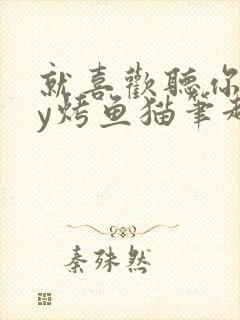 就喜歡聽你
y烤鱼猫筆趣
秦殊然